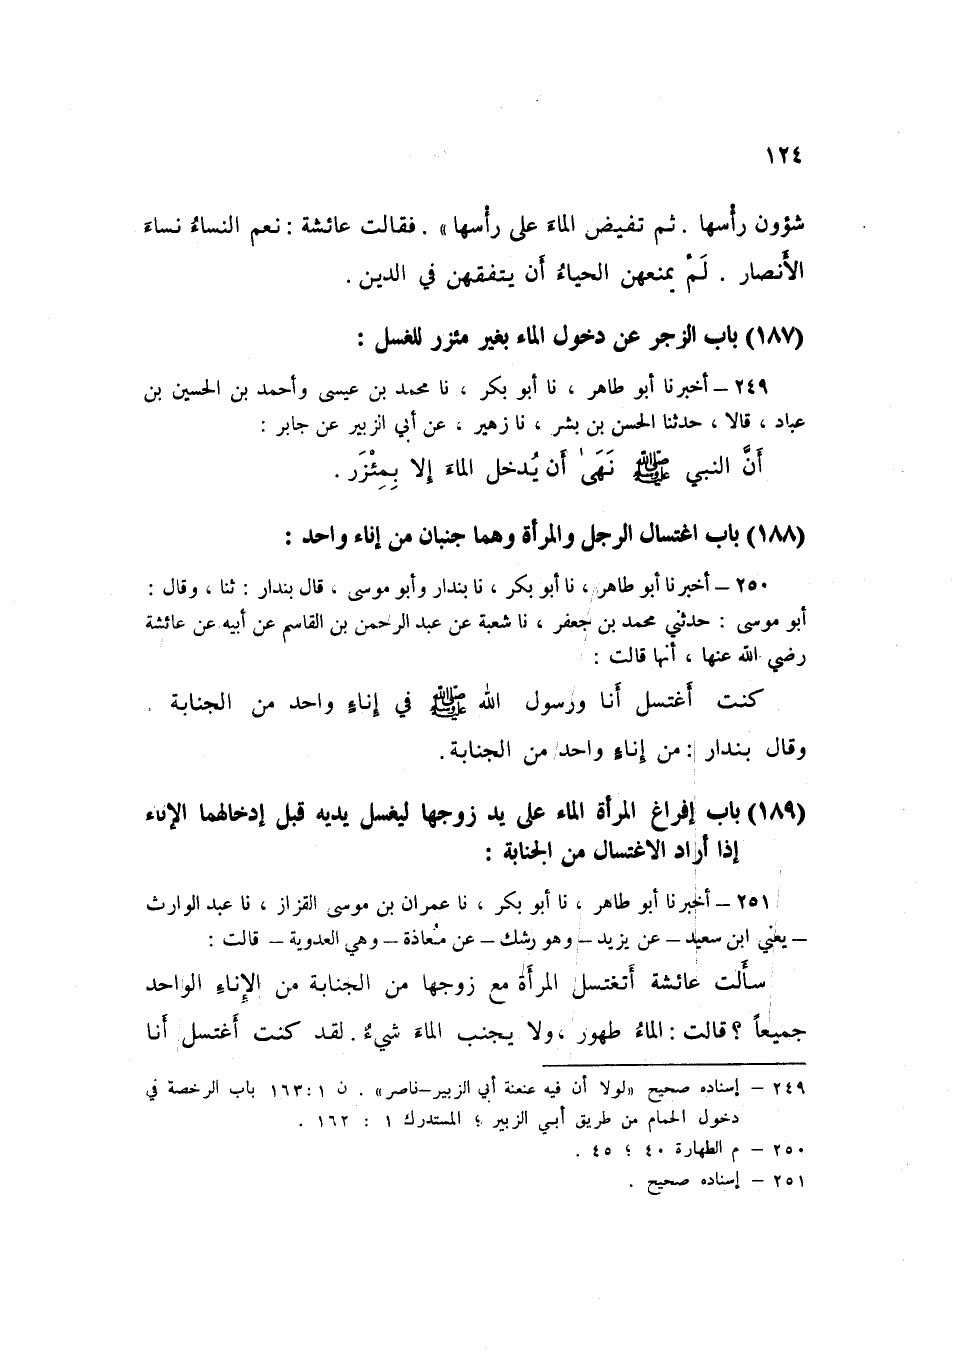 ١٢٤
شؤون رأسها . ثم تفيض الماءَ على رأسها» . فقالت عائشة : نعم النساءُ نساءَ
الأَنصار . لَمْ يمنعهن الحياءُ أَن يتفقهن في الدين .
(١٨٧) باب الزجر عن دخول الماء بغير مئزر للغسل :
٢٤٩ – أخبرنا أبو طاهر ، نا أبو بكر ، نا محمد بن عيسى وأحمد بن الحسين بن
عباد ، قالا ، حدثنا الحسن بن بشر ، نا زهير ، عن أبي الزبير عن جابر :
أَنَّ النبي ﷺ نَهَىٰ أَن يُدخل الماءَ إلا بِمِئْزَر .
(١٨٨) باب اغتسال الرجل والمرأة وهما جنبان من إناء واحد :
٢٥٠ – أخبرنا أبو طاهر ، نا أبو بكر ، نا بندار وأبو موسى ، قال بندار : ثنا ، وقال :
أبو موسى : حدثني محمد بن جعفر ، نا شعبة عن عبد الرحمن بن القاسم عن أبيه عن عائشة
رضي الله عنها ، أنها قالت :
كنت أَغتسل أَنا ورسول الله ﷺ في إِناءٍ واحد من الجنابة .
وقال بندار : من إِناءٍ واحد من الجنابة .
(١٨٩) باب إفراغ المرأة الماء على يد زوجها ليغسل يديه قبل إدخالهما الإناء
إذا أراد الاغتسال من الجنابة :
٢٥١ – أخبرنا أبو طاهر ، نا أبو بكر ، نا عمران بن موسى القزاز ، نا عبد الوارث
– يعني ابن سعيد – عن يزيد – وهو رشك – عن مُعاذة – وهي العدوية – قالت :
سأَلت عائشة أَتغتسل المرأَة مع زوجها من الجنابة من الإِناءِ الواحد
جميعاً ؟ قالت : الماءُ طهور ، ولا يجنب الماءَ شيءٌ . لقد كنت أَغتسل أَنا
٢٤٩ – إسناده صحيح «لولا أن فيه عنعنة أبي الزبير–ناصر» . ن ١ : ١٦٣ باب الرخصة في
دخول الحمام من طريق أبي الزبير ؛ المستدرك ١ : ١٦٢ .
٢٥٠ – م الطهارة ٤٠ ؛ ٤٥ .
٢٥١ – إسناده صحيح .